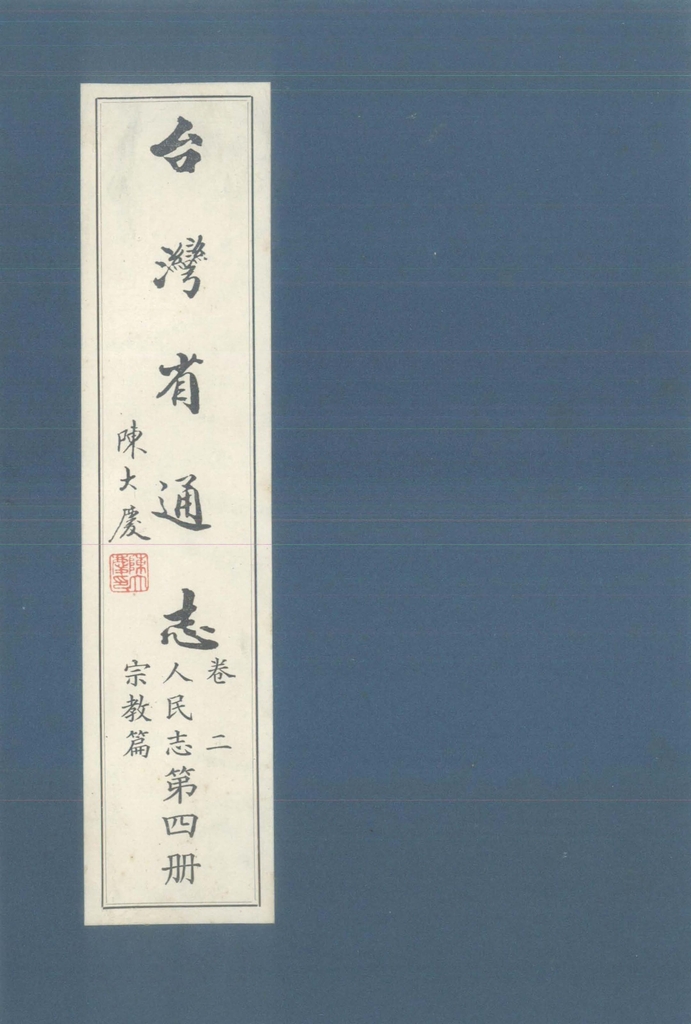 台灣省通志
卷二
人民志
宗教篇
第四册
陳大慶